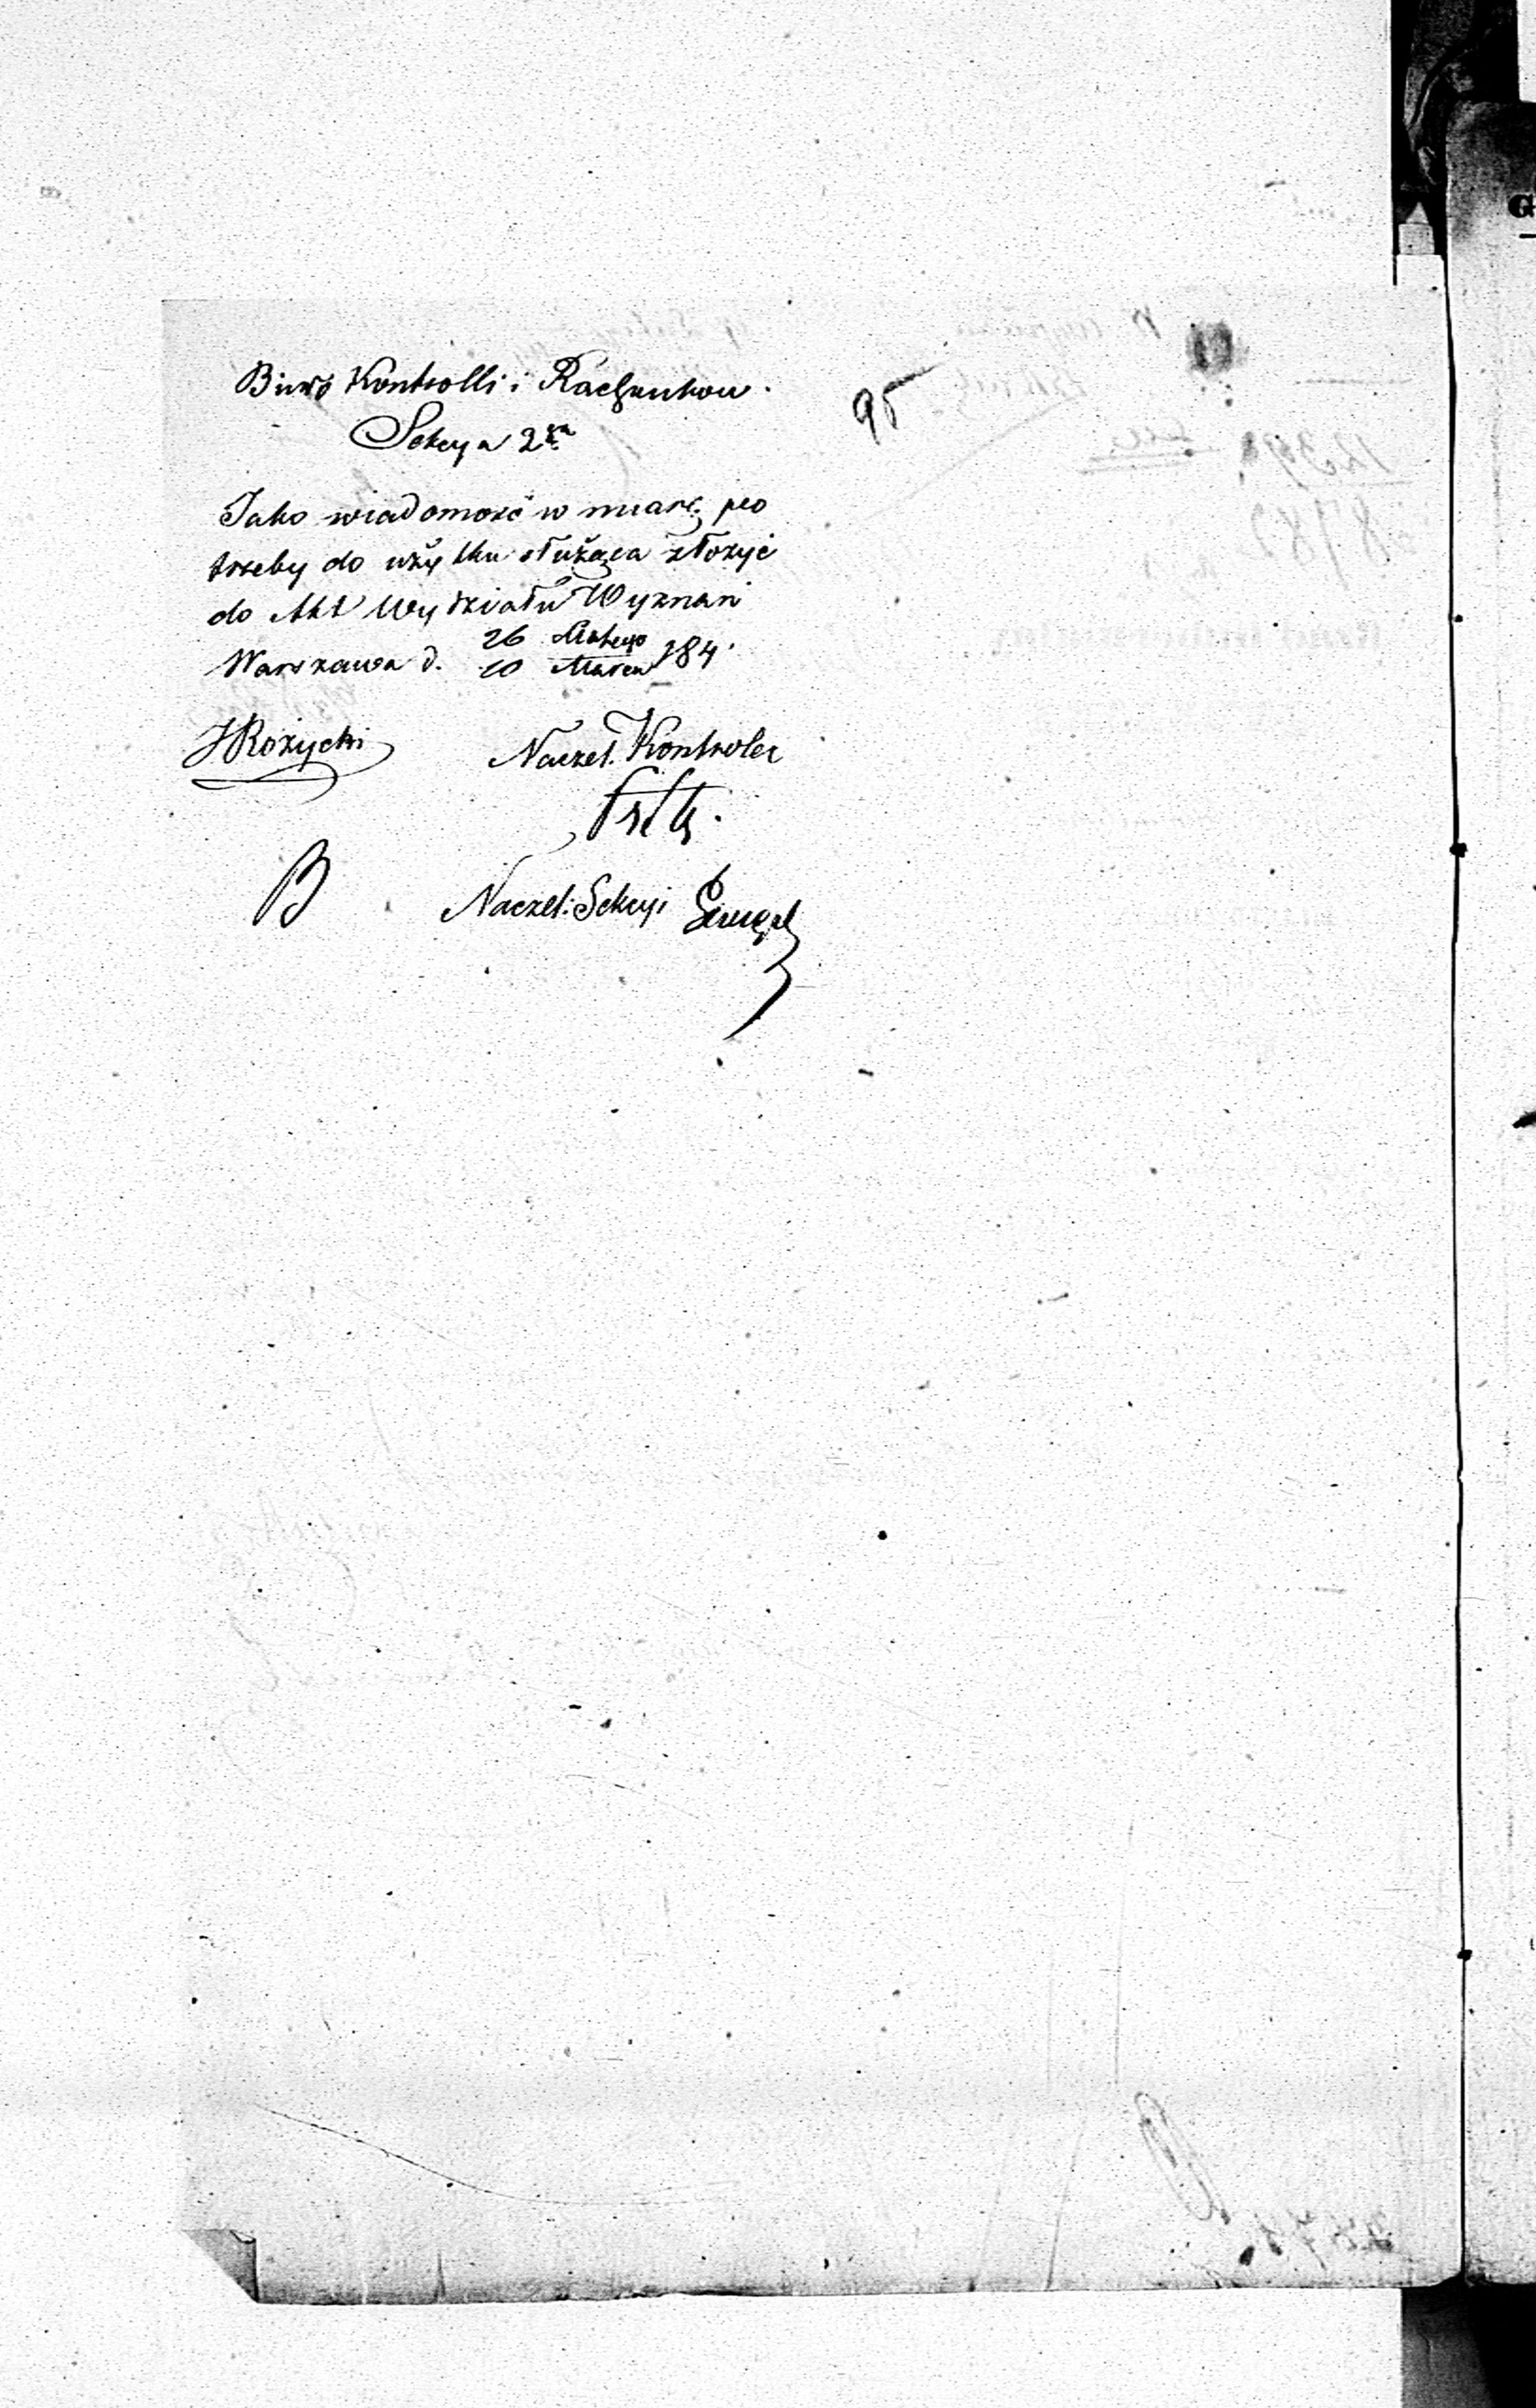 Biuro Kontrolli i Rachunkow.
95
Sekcya 2ga
Jako wiadomość w miarę po
trzeby do użytku służąca złożyć
do Akt Wydziału Wyznań
Warszawa d. 26 Lutego / 10 Marca 184
JRożycki Naczel. Kontroler
B Naczel: Sekcyi